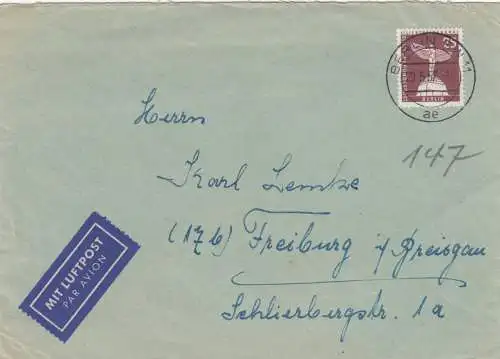 BERLIN
BERLIN
ae
147
Herrn
Karl Lemke
(17b) Freiburg i/Breisgau
Schlierbergstr. 1a
MIT LUFTPOST
PAR AVION